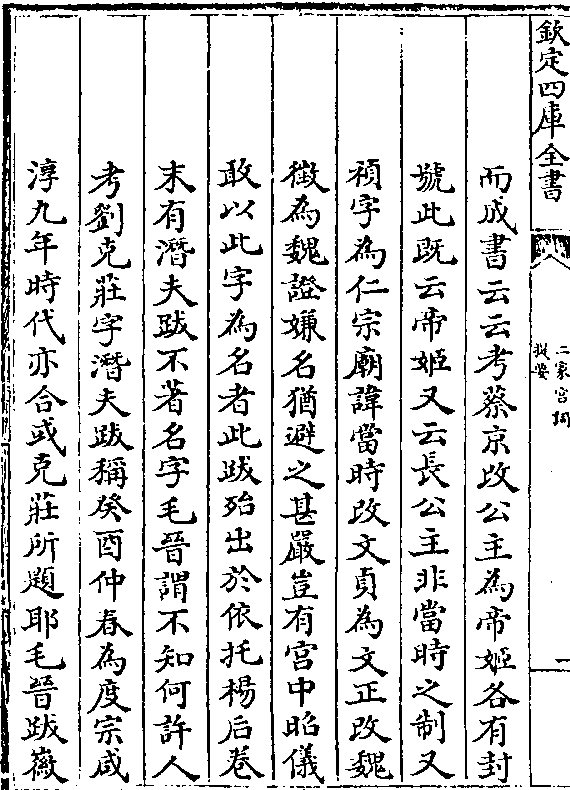 欽定四庫全書
二家宮詞
提要
一
而成書云云考蔡京改公主為帝姬各有封
號此既云帝姬又云長公主非當時之制又
禎字為仁宗廟諱當時改文貞為文正改魏
徵為魏證嫌名猶避之甚嚴豈有宫中昭儀
敢以此字為名者此跋殆出於依托楊后卷
末有潛夫跋不著名字毛晉謂不知何許人
考劉克莊字潛夫跋稱癸酉仲春為度宗咸
淳九年時代亦合或克莊所題耶毛晉跋薇